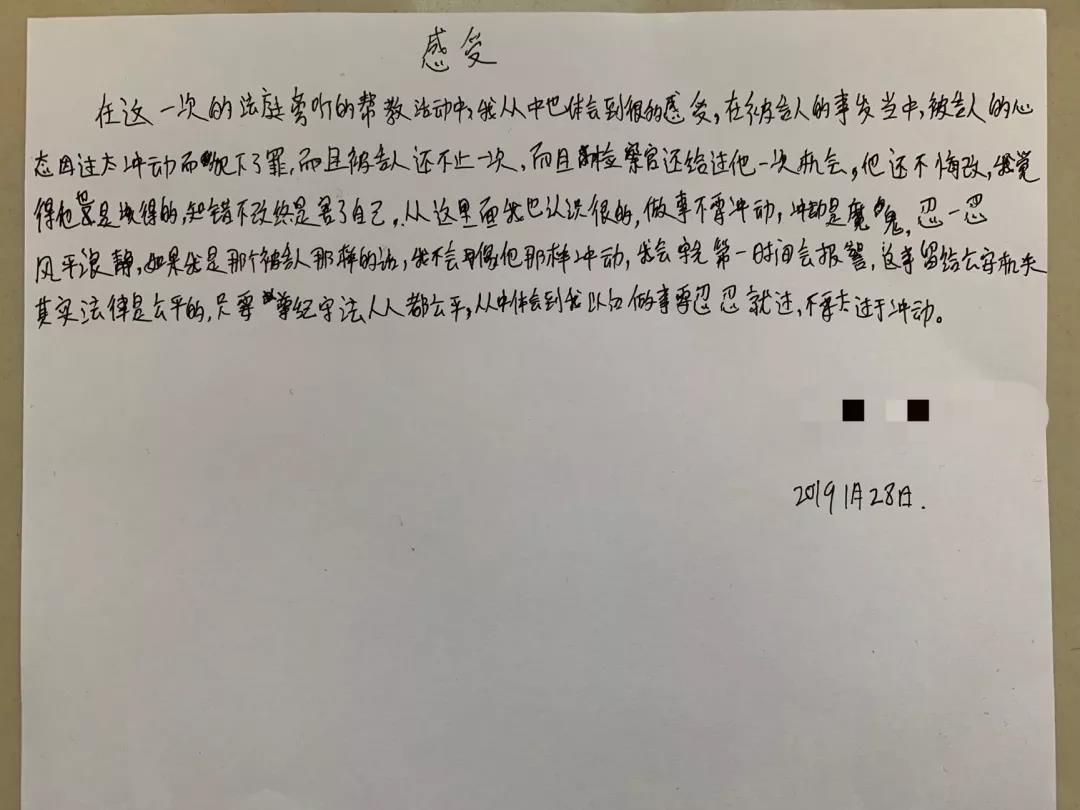 感受
在这一次的法庭旁听的帮教活动中,我从中也体会到很的感受,在被告人的事发当中,被告人的心
态因过太冲动而犯下了罪,而且被告人还不止一次,而且检察官还给过他一次机会,他还不悔改,我觉
得他是决得的,知错不改终是害了自己,从这里面我也认识很的,做事不要冲动,冲动是魔鬼,忍一忍
风平浪静,如果我是那个被告人那样的话,我不会像他那样冲动,我会第一时间会报警,这事留给公安机关
其实法律是公平的,只要遵纪守法人人都公平,从中体会到我以后做事要忍忍就过,不要太过于冲动。
2019 1月28日.